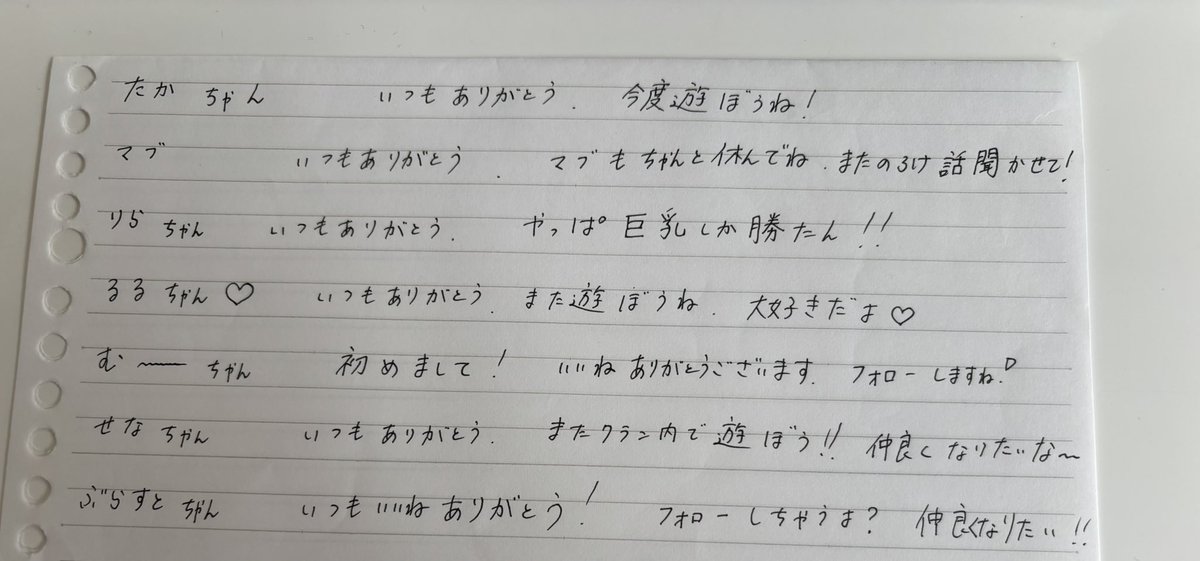 たかちゃん いつもありがとう. 今度遊ぼうね!
マブ いつもありがとう. マブもちゃんと休んでね.またのろけ話聞かせて!
りらちゃん いつもありがとう. やっぱ巨乳しか勝たん!!
るるちゃん♡ いつもありがとう. また遊ぼうね. 大好きだよ♡
む〜ちゃん 初めまして! いいねありがとうございます. フォローしますね.
せなちゃん いつもありがとう. またクラン内で遊ぼう!! 仲良くなりたいな〜
ぶらすとちゃん いつもいいねありがとう! フォローしちゃうよ? 仲良くなりたい!!